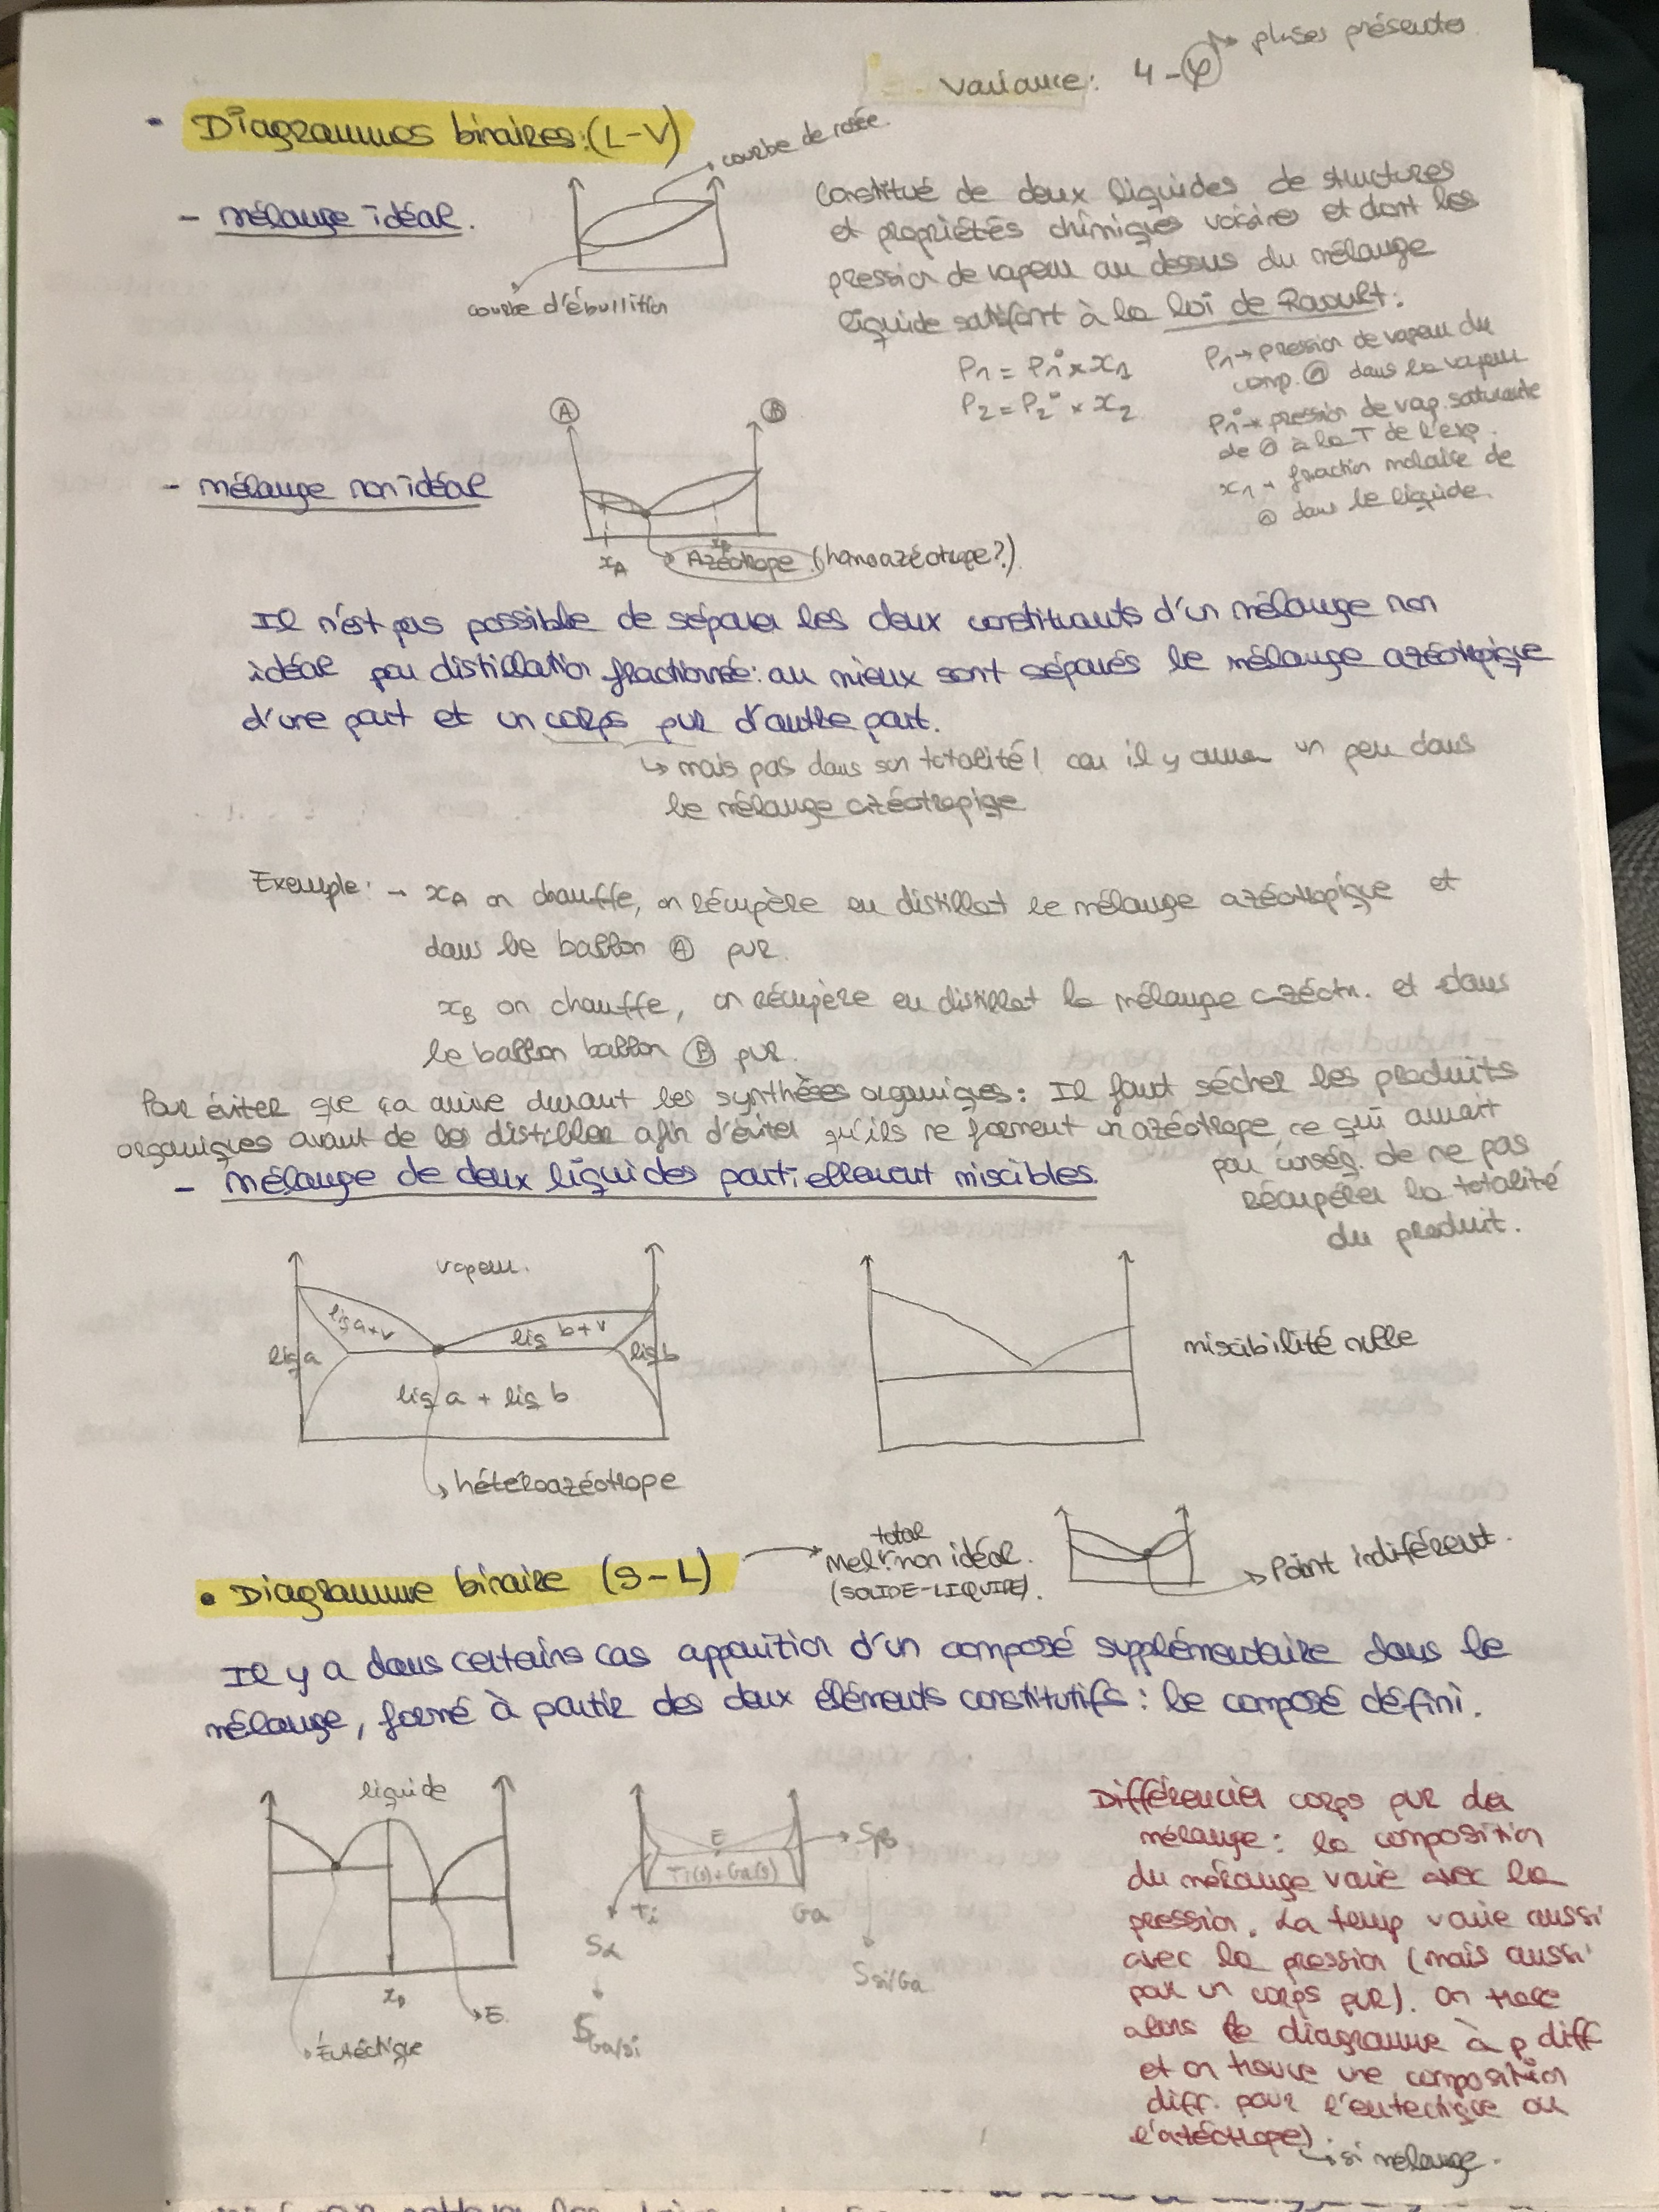 Variance: 4 - φ → phases présentes
• Diagrammes binaires: (L-V)
courbe de rosée.
- mélange idéal.
courbe d'ébullition
Constitué de deux liquides de structures
et propriétés chimiques voisines et dont les
pression de vapeur au dessus du mélange
liquide satisfont à la loi de Raoult:
P1 = P1° * x1
P2 = P2° * x2
P1 → pression de vapeur du
comp. ① dans la vapeur
P1° → pression de vap. saturante
de ① à la T de l'exp.
x1 → fraction molaire de
① dans le liquide.
Ⓐ Ⓑ
- mélange non idéal
xA xB
Azéotrope (homoazéotrope?)
Il n'est pas possible de séparer les deux constituants d'un mélange non
idéal par distillation fractionnée: au mieux sont séparés le mélange azéotropique
d'une part et un corps pur d'autre part.
↳ mais pas dans son totalité! car il y aura un peu dans
le mélange azéotropiqe
Exemple: → xA on chauffe, on récupère en distillat le mélange azéotropique et
dans le ballon Ⓐ pur.
xB on chauffe, on récupère en distillat le mélange azéotr. et dans
le ballon ballon Ⓑ pur.
Pour éviter que ça arrive durant les synthèses organiques: Il faut sécher les produits
organiques avant de les distiller afin d'éviter qu'ils ne forment un azéotrope, ce qui aurait
par conséq. de ne pas
récupérer la totalité
du produit.
- mélange de deux liquides partiellement miscibles.
vapeur.
liq a+v
liq b+v
liq a
liq b
liq a + liq b
hétéroazéotrope
miscibilité nulle
• Diagramme binaire (S-L)
total
Mel non idéal.
(SOLIDE-LIQUIDE).
Point indifférent.
Il y a dans certains cas apparition d'un composé supplémentaire dans le
mélange, formé à partir des deux éléments constitutifs: le composé défini.
liquide
xD
E
Eutéctique
E
Ti(s)+Ga(s)
Ti
Ga
Sα
Sβ
SGa/Si
SSi/Ga
Différencier corps pur de
mélange: la composition
du mélange varie avec la
pression. La temp varie aussi
avec la pression (mais aussi
pour un corps pur). On trace
alors le diagramme à p diff
et on trouve une composition
diff. pour l'eutectique ou
l'azéotrope)
↳ si mélange.